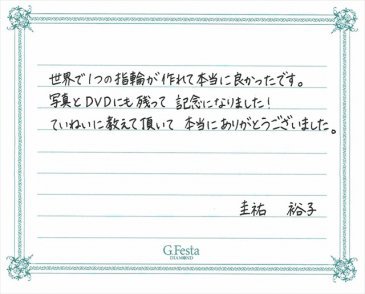 世界で1つの指輪が作れて本当に良かったです。
写真とDVDにも残って 記念になりました!
ていねいに教えて頂いて 本当にありがとうございました。
圭祐 裕子
G.Festa
DIAMOND